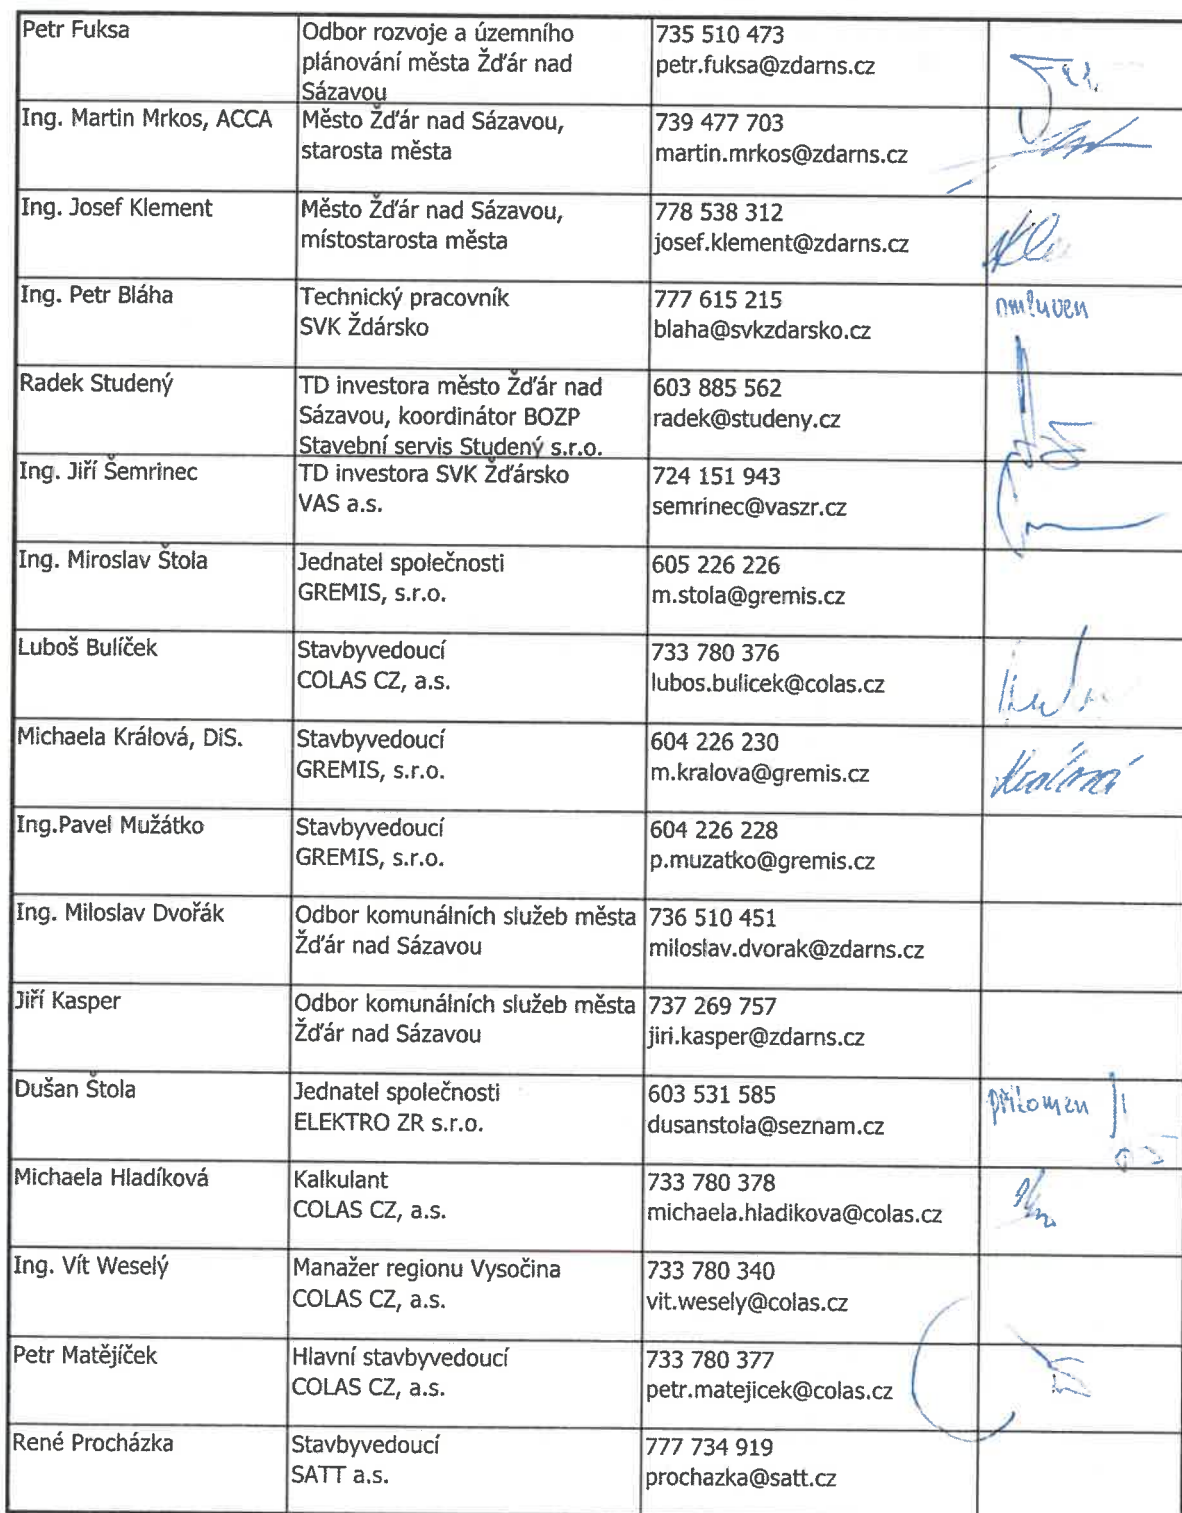 Petr Fuksa
Odbor rozvoje a územního
plánování města Žďár nad
Sázavou
735 510 473
petr.fuksa@zdarns.cz
Ing. Martin Mrkos, ACCA
Město Žďár nad Sázavou,
starosta města
739 477 703
martin.mrkos@zdarns.cz
Ing. Josef Klement
Město Žďár nad Sázavou,
místostarosta města
778 538 312
josef.klement@zdarns.cz
Ing. Petr Bláha
Technický pracovník
SVK Ždársko
777 615 215
blaha@svkzdarsko.cz
omluven
Radek Studený
TD investora město Žďár nad
Sázavou, koordinátor BOZP
Stavební servis Studený s.r.o.
603 885 562
radek@studeny.cz
Ing. Jiří Šemrinec
TD investora SVK Žďársko
VAS a.s.
724 151 943
semrinec@vaszr.cz
Ing. Miroslav Štola
Jednatel společnosti
GREMIS, s.r.o.
605 226 226
m.stola@gremis.cz
Luboš Bulíček
Stavbyvedoucí
COLAS CZ, a.s.
733 780 376
lubos.bulicek@colas.cz
Michaela Králová, DiS.
Stavbyvedoucí
GREMIS, s.r.o.
604 226 230
m.kralova@gremis.cz
Králová
Ing.Pavel Mužátko
Stavbyvedoucí
GREMIS, s.r.o.
604 226 228
p.muzatko@gremis.cz
Ing. Miloslav Dvořák
Odbor komunálních služeb města
Žďár nad Sázavou
736 510 451
miloslav.dvorak@zdarns.cz
Jiří Kasper
Odbor komunálních služeb města
Žďár nad Sázavou
737 269 757
jiri.kasper@zdarns.cz
Dušan Štola
Jednatel společnosti
ELEKTRO ZR s.r.o.
603 531 585
dusanstola@seznam.cz
přítomen
Michaela Hladíková
Kalkulant
COLAS CZ, a.s.
733 780 378
michaela.hladikova@colas.cz
Ing. Vít Weselý
Manažer regionu Vysočina
COLAS CZ, a.s.
733 780 340
vit.wesely@colas.cz
Petr Matějíček
Hlavní stavbyvedoucí
COLAS CZ, a.s.
733 780 377
petr.matejicek@colas.cz
René Procházka
Stavbyvedoucí
SATT a.s.
777 734 919
prochazka@satt.cz